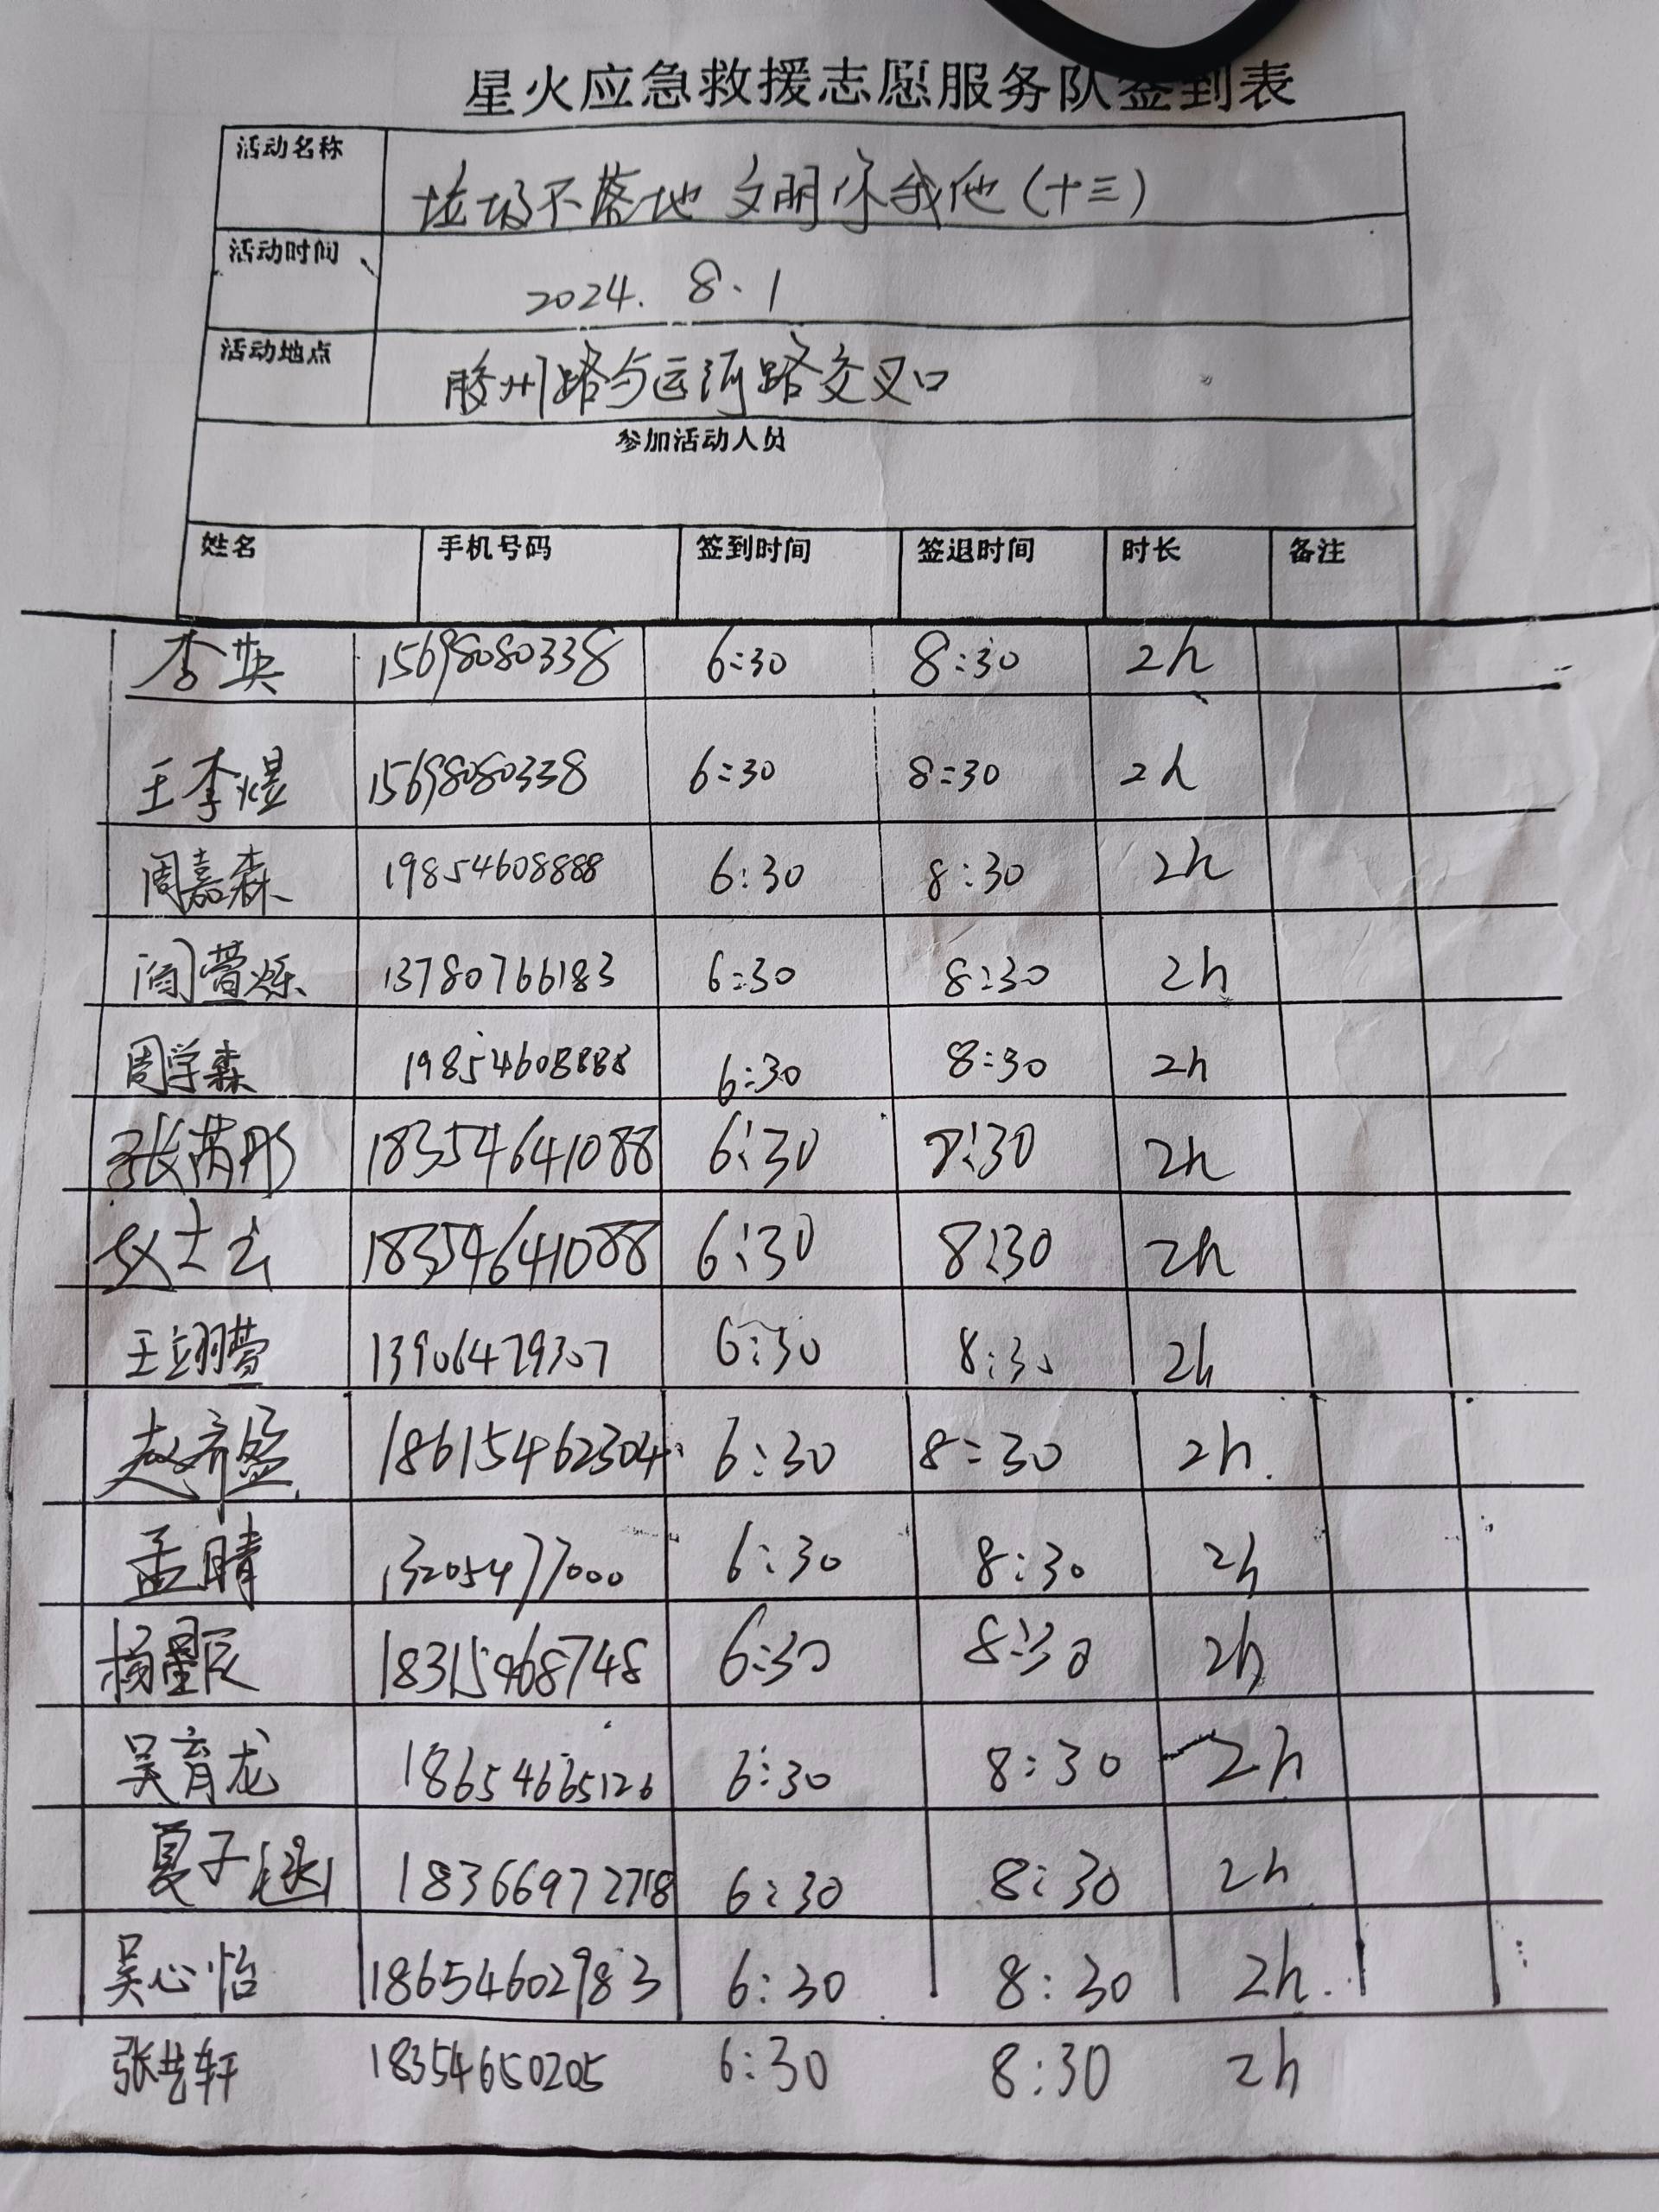 星火应急救援志愿服务队签到表
活动名称 垃圾不落地 文明你我他（十三）
活动时间 2024. 8. 1
活动地点 胶州路与运河路交叉口
参加活动人员
姓名 手机号码 签到时间 签退时间 时长 备注
李英 15698080338 6:30 8:30 2h
王李煜 15698080338 6:30 8:30 2h
周嘉森 19854608888 6:30 8:30 2h
阎萱烁 13780766183 6:30 8:30 2h
周学森 19854608888 6:30 8:30 2h
张芮彤 18354641088 6:30 8:30 2h
赵士云 18354641088 6:30 8:30 2h
王翊萱 13906479307 6:30 8:30 2h
赵齐盈 18615462304 6:30 8:30 2h.
孟晴 13205477000 6:30 8:30 2h
杨星辰 18315968748 6:30 8:30 2h
吴育龙 18654665126 6:30 8:30 2h
夏子 18366972718 6:30 8:30 2h
吴心怡 18654602983 6:30 8:30 2h.
张艺轩 18354650205 6:30 8:30 2h